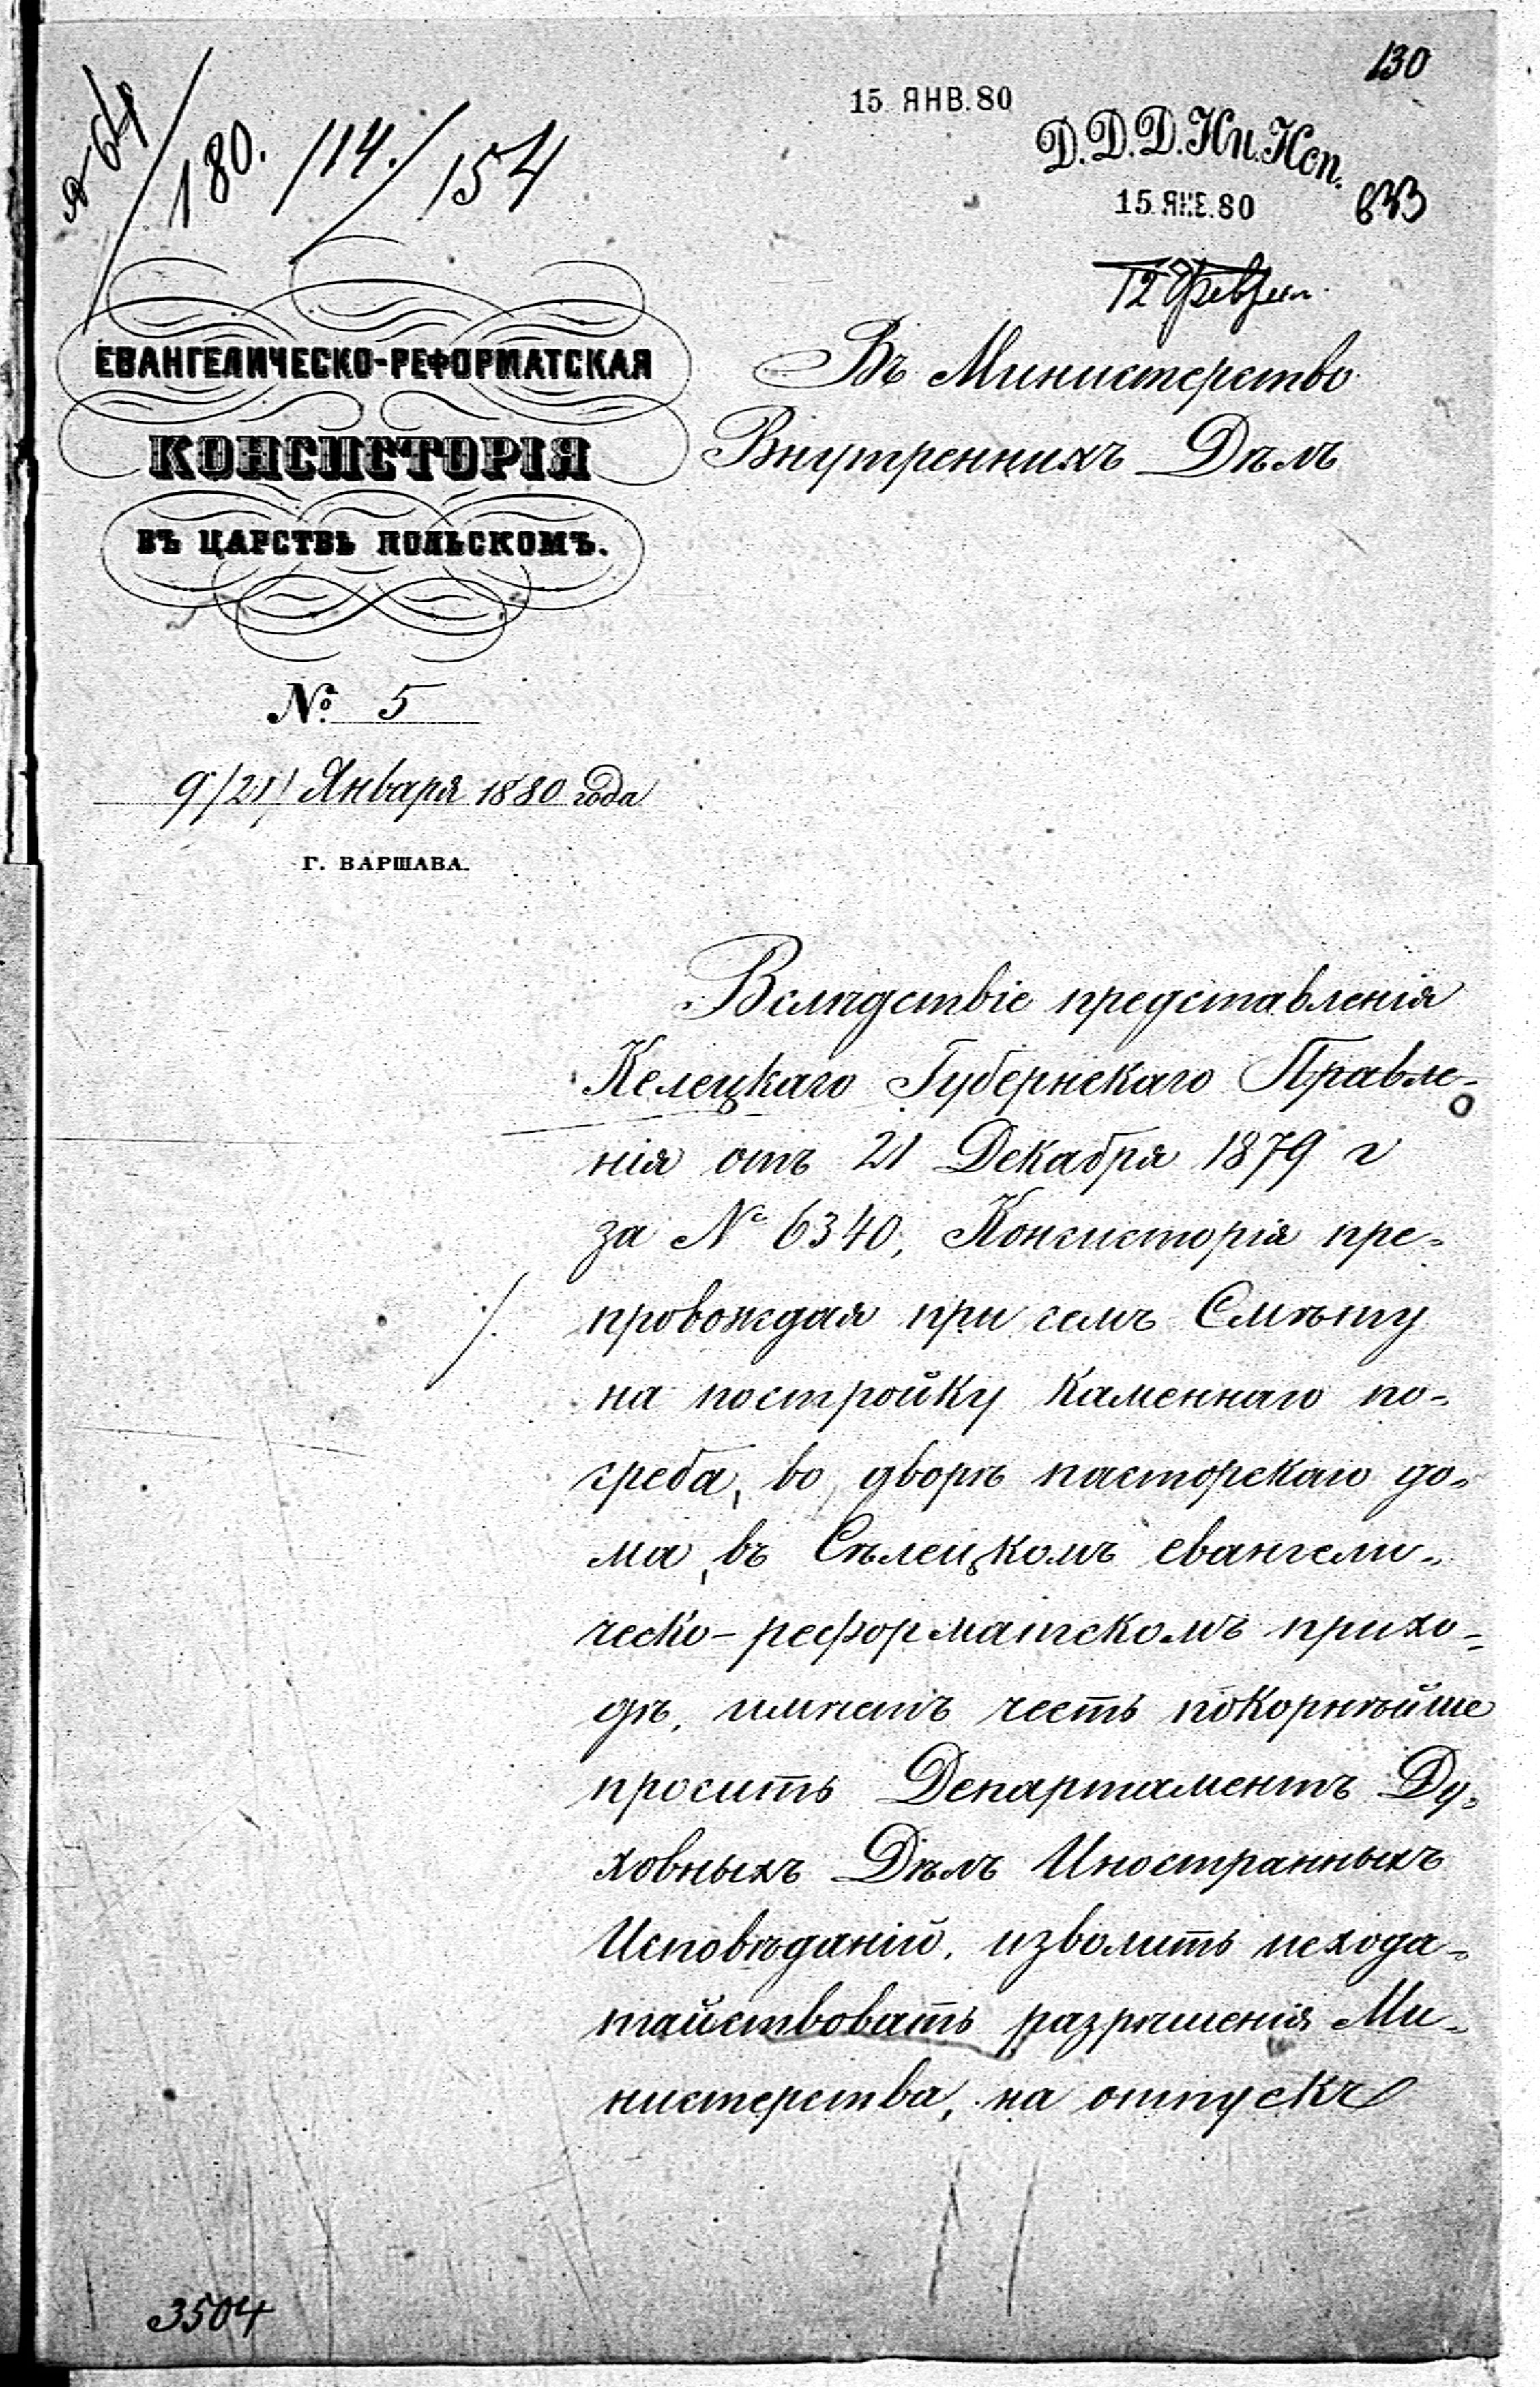 130
15 ЯНВ. 80
Д.Д.Д.Ин.Исп.
15 ЯНВ. 80
633
180. 114. / 154
12 Феврал
ЕВАНГЕЛИЧЕСКО-РЕФОРМАТСКАЯ
КОНСИСТОРІЯ
ВЪ ЦАРСТВѢ ПОЛЬСКОМЪ.
№ 5
9/21/ Января 1880 года
Г. ВАРШАВА.
Въ Министерство
Внутреннихъ Дѣлъ
Вслѣдствіе представленія
Келецкаго Губернскаго Правле-
нія отъ 21 Декабря 1879 г
за № 6340, Консисторія пре-
./. провождая при семъ Смѣту
на постройку каменнаго по-
греба, во дворѣ пасторскаго до-
ма, въ Сѣлецкомъ евангели-
ческо-реформатскомъ прихо-
дѣ, имѣетъ честь покорнѣйше
просить Департаментъ Ду-
ховныхъ Дѣлъ Иностранныхъ
Исповѣданій, изволить исхода-
тайствовать разрѣшенія Ми-
нистерства, на отпускъ
3504